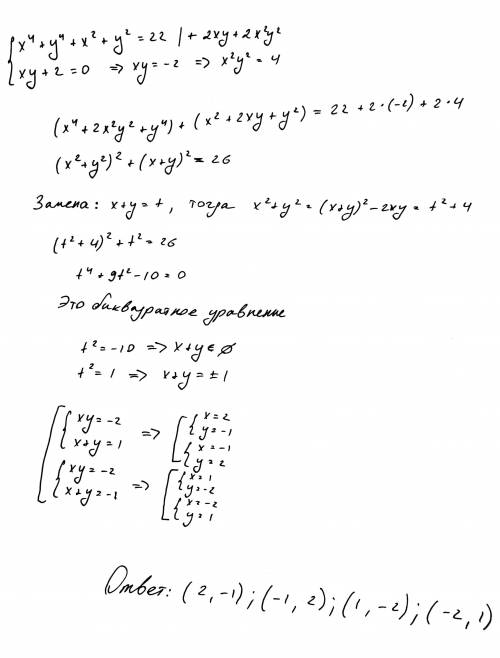 x⁴+y⁴+x²+y²=22 |+2xy+2x²y²
xy+2=0 ⇒ xy=-2 ⇒ x²y²=4
(x⁴+2x²y²+y⁴)+(x²+2xy+y²)=22+2·(-2)+2·4
(x²+y²)²+(x+y)²=26
Замена: x+y=t, тогда x²+y²=(x+y)²-2xy=t²+4
(t²+4)²+t²=26
t⁴+9t²-10=0
Это биквадратное уравнение
t²=-10 ⇒ x+y∈∅
t²=1 ⇒ x+y=±1
xy=-2
x+y=1
⇒
x=2
y=-1
x=-1
y=2
xy=-2
x+y=-1
⇒
x=1
y=-2
x=-2
y=1
Ответ: (2,-1);(-1,2);(1,-2);(-2,1)